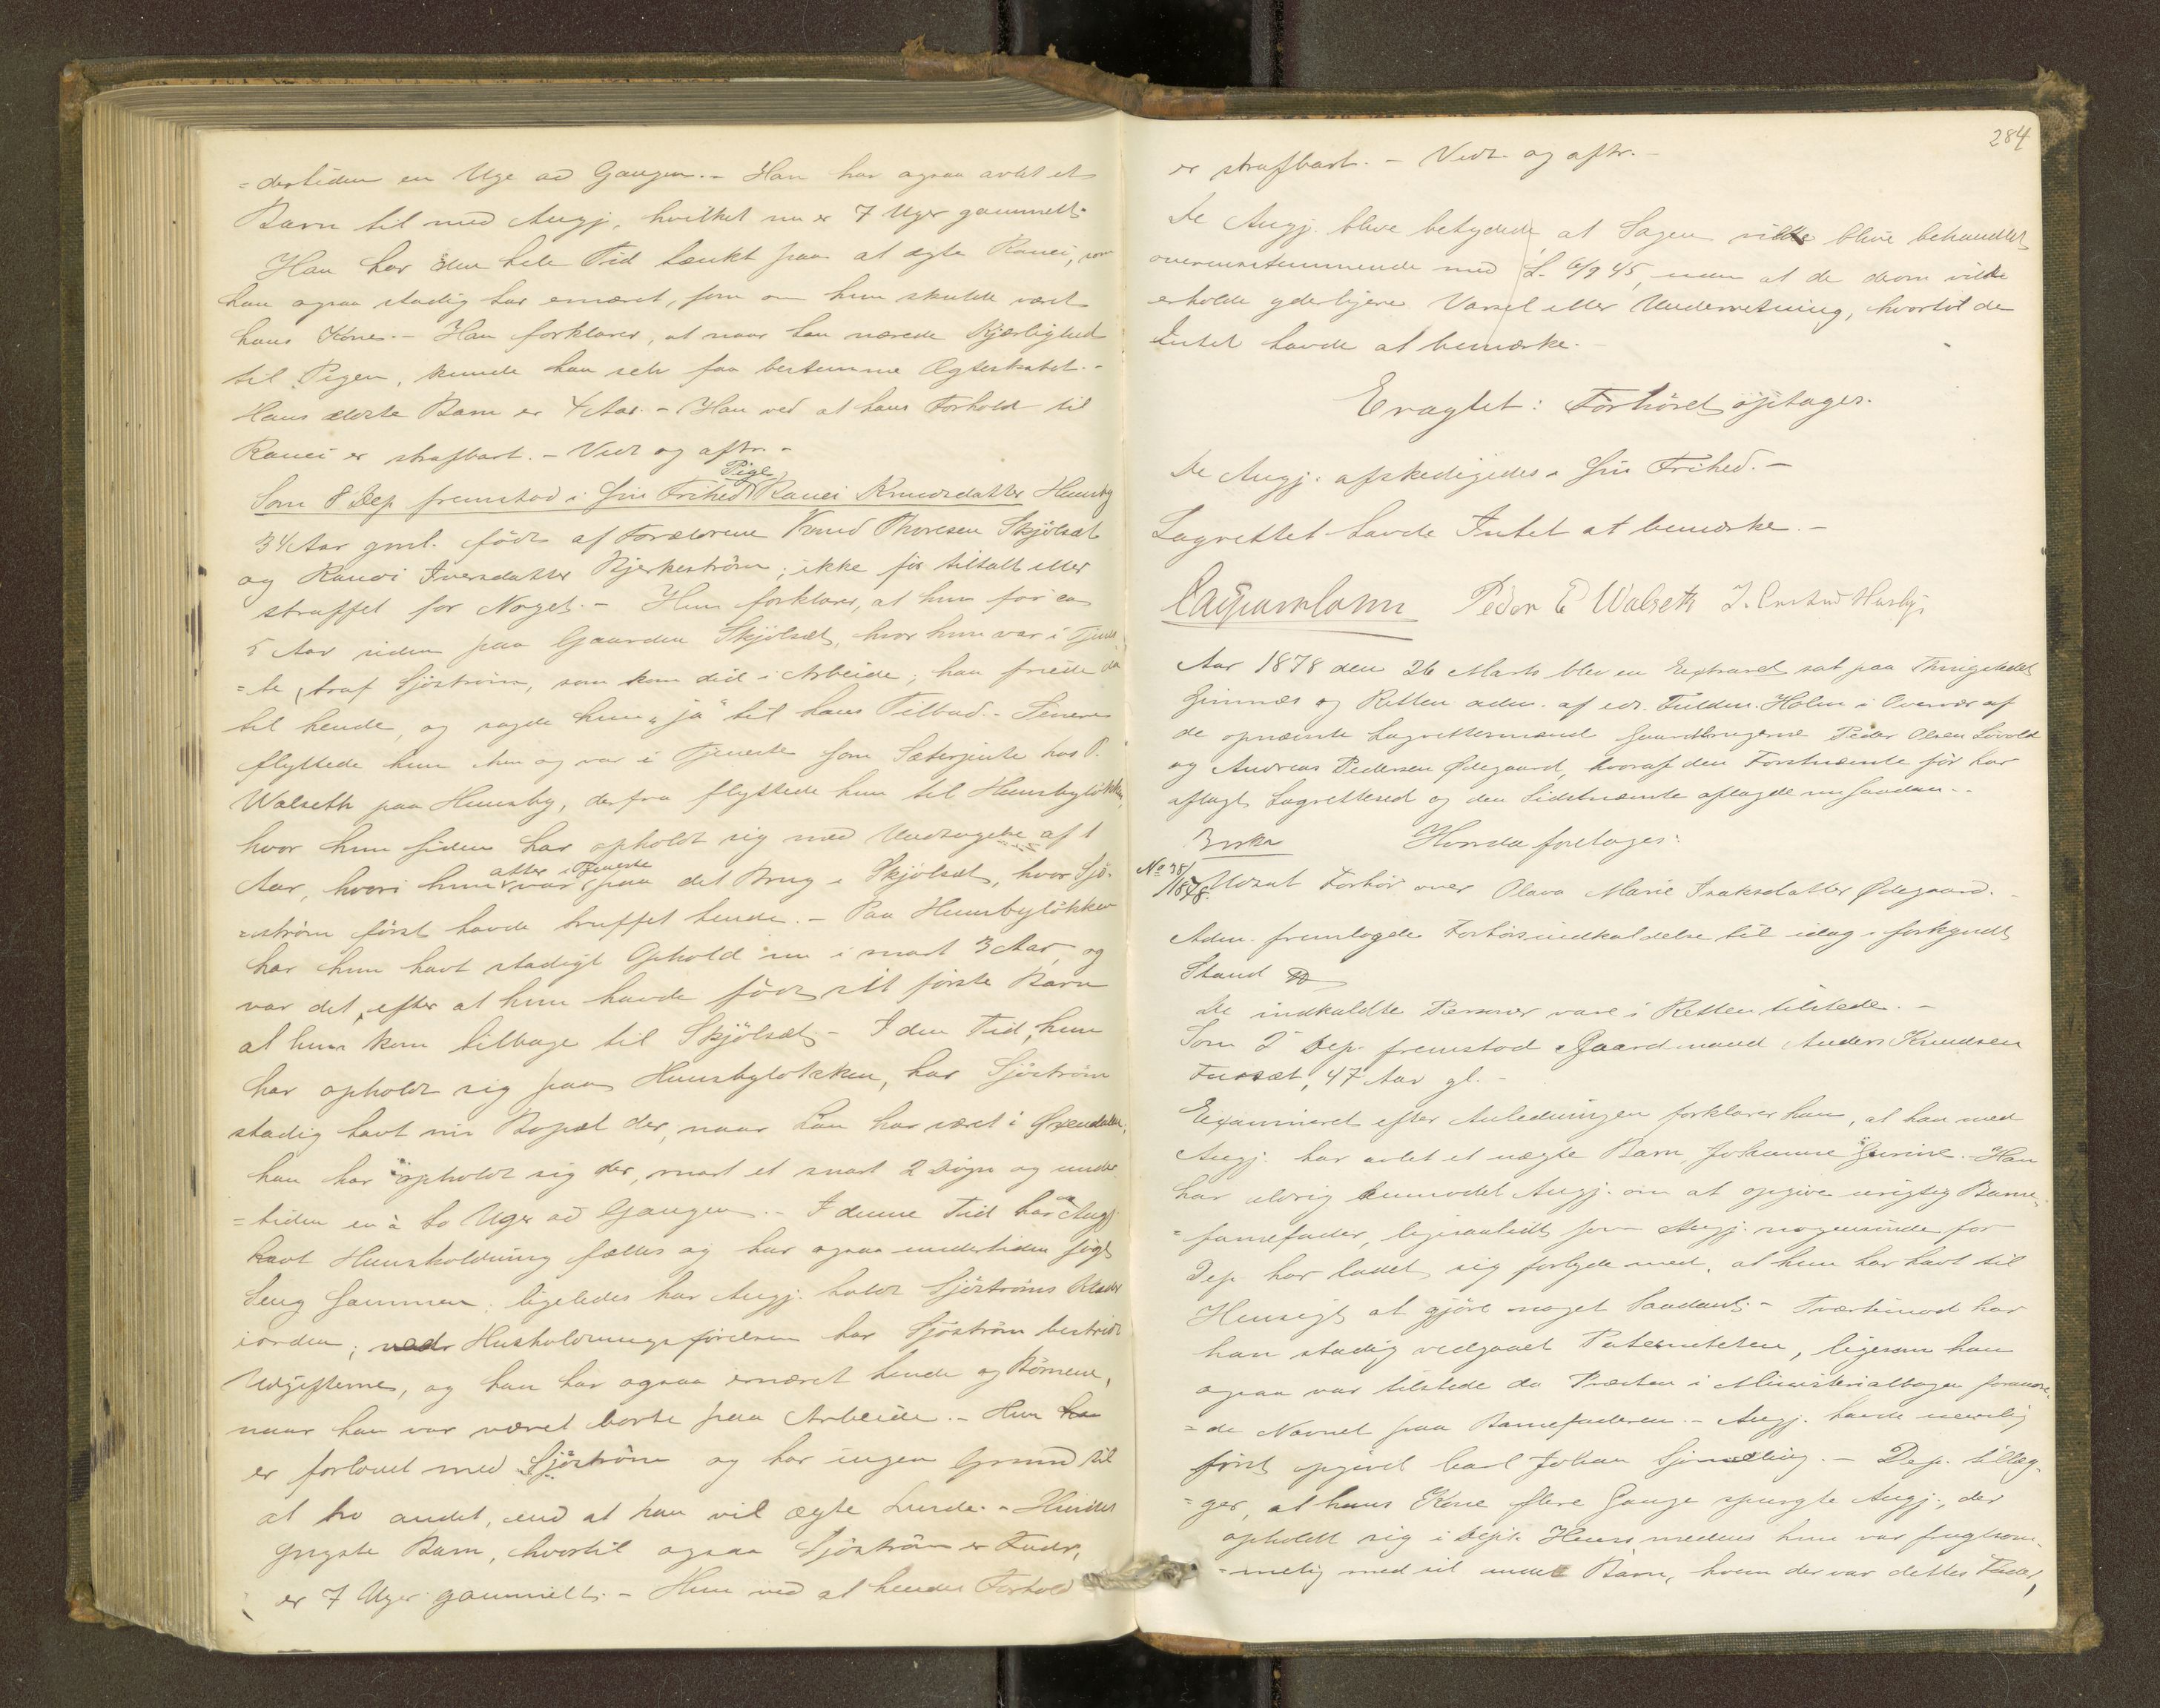 =dertiden en Uge ad Gangen. - Han har ogsaa avlet et
Barn til med Angj., hvilket nu er 7 Uger gammelt.
Han har den hele Tid tænkt paa at ægte Ranei, som
han ogsaa stadig har ernæret, som om hun skulde været
hans Kone. - Han forklarer, at naar han nærede Kjærlighed
til Pigen, kunde han selv faa bestemme Ægteskabet. -
Hans ældste Barn er 4 Aar. - Han ved at hans Forhold til
Ranei er strafbart. - Vedt. og aftr. -
Som 8 Dep fremstod i sin Frihed Pige Ranei Knudsdatter Hunsby
34 Aar gml. født af Forældrene Knud Thoresen Skjölsæt
og Randi Iversdatter Bjerkeström; ikke för tiltalt eller
straffet for Noget. - Hun forklarer, at hun for ca
5 Aar siden paa Gaarden Skjölsæt, hvor hun var i Tjene=
=te, traf Sjöström, som kom did i Arbeide; han friede da
til hende, og sagde hun "ja" til hans Tilbud. - Senere
flyttede hun hen og var i Tjeneste som Sæterjente hos P.
Walseth paa Hunsby, derfra flyttede hun til Hunsbylökken,
hvor hun siden har opholdt sig med Undtagelse af 1
Aar, hvori hun atter i Tjeneste var paa det Brug i Skjölsæt, hvor Sjö=
=ström först havde truffet hende. - Paa Hunsbylökken
har hun havt stadigt Ophold nu i snart 3 Aar, og
var det, efter at hun havde född sit förste Barn
at hun kom tilbage til Skjölsæt. - I den Tid, hun
har opholdt sig paa Hunsbylökken, har Sjöström
stadig havt sin Bopæl der, naar han har været i Öxendalen,
han har opholdt sig der, snart et snart 2 Dögn og under
=tiden en à to Uger ad Gangen. - I denne Tid har Angj
havt Huusholdning fælles og har ogsaa undertiden søgt
Seng sammen; ligeledes har Angj. holdt Sjöströms Klæder
iorden; Husholdningsförelsen har Sjöström bestridt
Udgifterne, og han har ogsaa ernæret hende og Börnene,
naar han var været borte paa Arbeide. - Hun
er forlovet med Sjöström og har ingen Grund til
at tro andet, end at han vil ægte hende. - Hendes
yngste Barn, hvortil ogsaa Sjöström er Fader,
er 7 Uger gammelt. - Hun ved at hendes Forhold
284
er strafbart. - Vedt. og aftr. -
De Angj. bleve betydede, at Sagen vilde blive behandlet
overensstemmende med L. 6/9 45, uden at de derom vilde
erholde yderligere Varsel eller Underretning, hvortil de
Intet havde at bemærke. -
Eragtet: Forhöret optages.
De Angj. afskedigedes i sin Frihed. -
Lagrettet havde Intet at bemærke. -
Peder E Walseth J. Husby
Aar 1878 den 26 Marts blev en Extraret sat paa Thingstedet
Gjinnæs og Retten adm. af edv. Fuldm. Holm i Overvær af
de opnævnte Lagrettesmænd Gaardbrugerne Peder Olsen Lövold
og Andreas Pedersen Ødegaard, hvoraf den Förstnævnte för har
aflagt Lagrettesed og den Sidstnævnte aflagde nu saadan. -
Hvorda foretoges:
No 38/1878. Udsat Forhör over Olava Marie Isaksdatter Ødegaard. -
Adm. fremlagde Forhörsindkaldelse til idag i forkyndt
Stand
De indkaldte Personer vare i Retten tilstede. -
Som 2 Dep. fremstod Gaardmand Anders Knudsen
Fursæt, 47 Aar gl. -
Examineret efter Anledningen forklarer han, at han med
Angj. har avlet et uægte Barn, Johanne Gurine. Han
har aldrig anmodet Angj. om at opgive urigtig Barne=
=farefader, ligesaalidt som Angj. nogensinde for
Dep. har ladet sig forlyde med, at hun har havt til
Hensigt at gjöre noget Saadant. - Tværtimod har
han stadig vedgaaet Paterniteten, ligesom han
ogsaa var tilstede da Præsten i Ministerialbogen forandre=
=de Navnet paa Barnefaderen. - Angj. havde nemlig
först opgivet Carl Johan . - Dep. tillæg=
=ger, at hans Kone flere Gange spurgte Angj., der
opholdt sig i Dep's Huus, medens hun var frugtsom=
=melig med sit andet Barn, hvem der var dettes Fader,